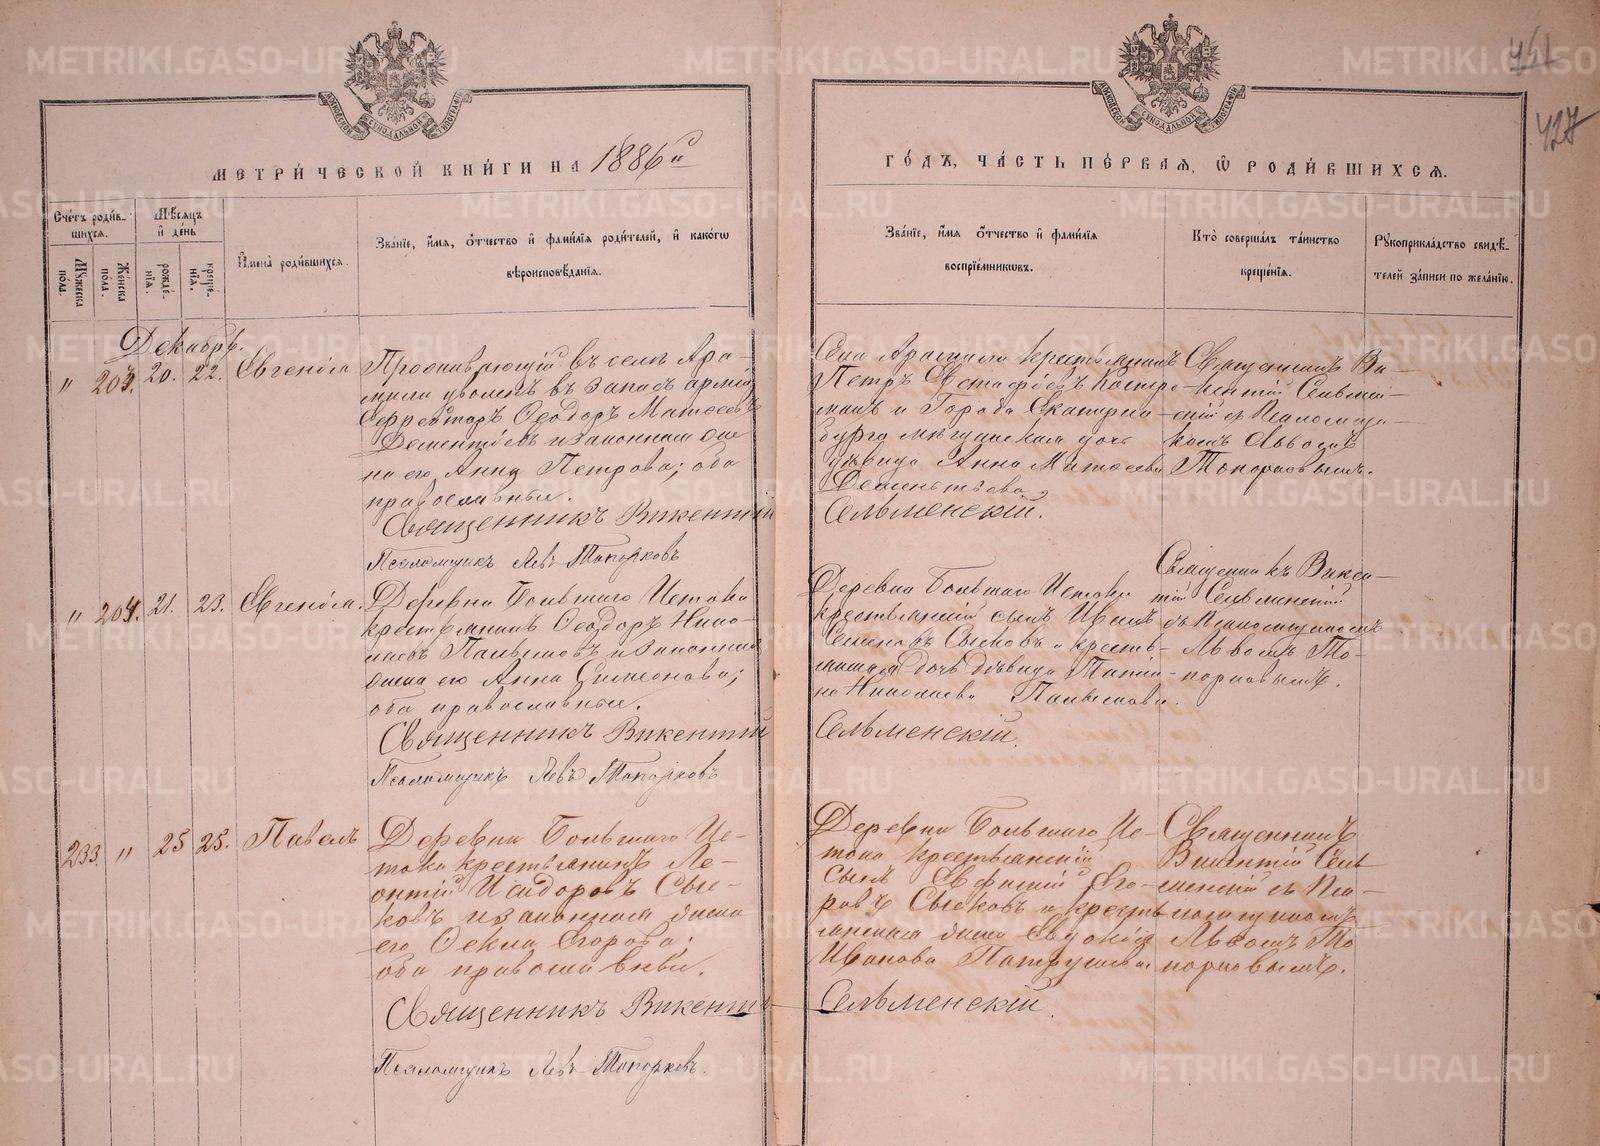 751
427
МОСКОВСКОЙ СѴНОДАЛЬНОЙ ТИПОГРАФІИ
МОСКОВСКОЙ СѴНОДАЛЬНОЙ ТИПОГРАФІИ
МЕТРИ́ЧЕСКОЙ КНИ́ГИ НА 1886й
ГО́ДЪ, ЧА́СТЬ ПЕ́РВАЯ, Ѽ РОДИ́ВШИХСЯ.
Сче́тъ роди́в-
шихся.
Му́жеска
по́ла.
Же́нска
по́ла.
Мѣ́сяцъ
и҆ де́нь
рожде́-
нїя.
креще́-
нїя.
И҆мена̀ роди́вшихся.
Зва́нїе, и҆́мя, о҆́тчество и҆ фами́лїя роди́телей, и҆ како́гѡ
вѣроисповѣ́данїя.
Зва́нїе, и҆́мя о҆́тчество и҆ фами́лїя
воспрїе́мникѡвъ.
Кто̀ соверша́лъ та́инство
креще́нїя.
Рꙋкоприкла́дство свидѣ́-
телей за́писи по жела́нїю.
Декабрь.
" 203. 20. 22. Евгенія
Проживающій въ селѣ Ара-
миля уволен. въ запасъ арміи
Ефрейторъ Ѳеодоръ Матѳеевъ
Дементьевъ и законная же-
на его Анна Петрова; оба
православные.
Священникъ Викентій
Псаломщикъ Левъ Топорковъ
Села Арамиля крестьянинъ
Петръ Евстафіевъ
и Города Екатерин-
бурга мѣщанская дочь
дѣвица Анна Матѳеева
Дементьева.
Сельменскій.
Священникъ Ви-
кентій Сельмен-
скій съ Псаломщи-
комъ Львомъ
Топорковымъ.
" 204. 21. 23. Евгенія.
Деревни Большаго Истока
крестьянинъ Ѳеодоръ Нико-
лаевъ и законная
жена его Анна Симеонова;
оба православные.
Священникъ Викентій
Псаломщикъ Левъ Топорковъ
Деревни Большаго Истока
крестьянскій сынъ Иванъ
Сысковъ и кресть-
янская дочь дѣвица Татія-
на Николаева
Сельменскій.
Священникъ Викен-
тій Сельменскій
съ Псаломщикомъ
Львомъ То-
порковымъ.
233. " 25 25. Павелъ
Деревни Большаго Ис-
тока крестьянинъ Ле-
онтій Исидоровъ Сыс-
ковъ и законная жена
его Ѳекла Егорова;
оба православные.
Священникъ Викентій
Псаломщикъ Левъ Топорковъ.
Деревни Большаго Ис-
тока крестьянскій
сынъ Евфимій Его-
ровъ Сысковъ и кресть-
янская жена Евдокія
Иванова Патрушева
Сельменскій.
Священникъ
Викентій Сель-
менскій съ Пса-
ломщикомъ
Львомъ То-
порковымъ.
METRIKI.GASO-URAL.RU